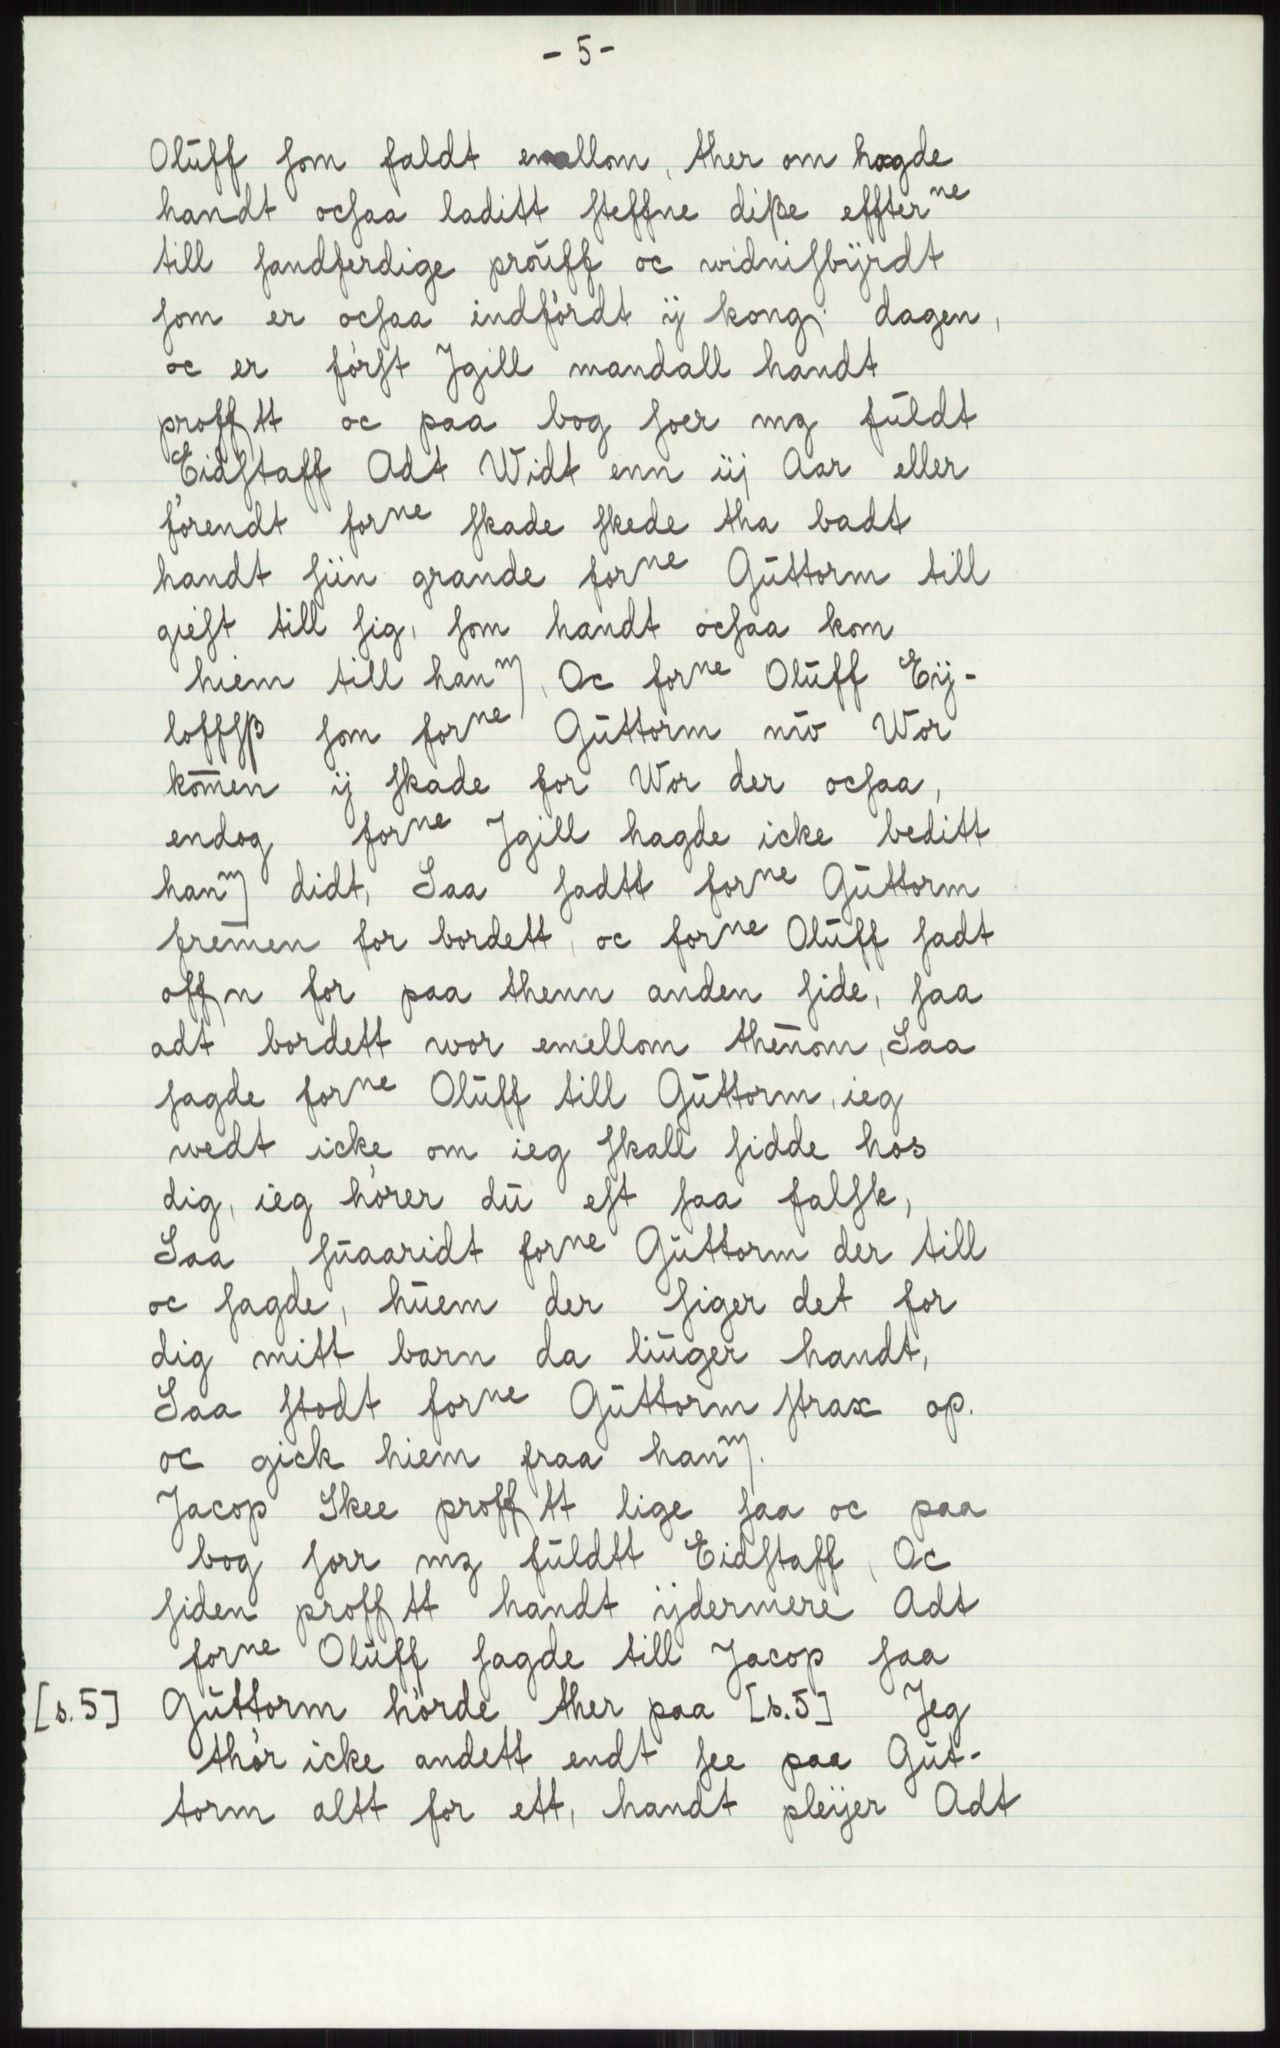 - 5 -
Olūff som faldt emellom, ther om hagde
handt ocsaa laditt steffne diße effter ne
till sandferdige prōuff oc widnisbÿrdt
som er ocsaa indfördt ÿ kong: dagen,
oc er först Jgill mandall handt
proff tt oc paa bog soer mz fūldt
Eidstaff Adt Widt enn iij Aar eller
förendt for ne skade skede tha badt
handt siin grande for ne Gūttorm till
giest till sig, som handt ocsaa kom
hiem till han m, Oc for ne Olūff Eÿ-
loffsß som for ne Gūttorm nw Wor
kōmen ÿ skade for Wor der ocsaa,
endog for ne Jgill hagde icke beditt
han m didt, Saa sadtt for ne Gūttorm
fremēn for bordett, oc for ne Olūff sadt
off n for paa thenn anden side, saa
adt bordett wor emellom thēnom, Saa
sagde for ne Olūff till Gūttorm, ieg
wedt icke om ieg skall sidde hos
dig, ieg hörer dū est saa falsk,
Saa sūaaridt for ne Gūttorm der till
oc sagde, hūem der siger det for
dig mitt barn da liūger handt,
Saa stodt for ne Gūttorm strax op.
oc gick hiem fraa han m.
Jacop Skee proff tt lige saa oc paa
bog sorr mz fūldtt Eidstaff, Oc
siden proff tt handt ÿdermere Adt
for ne Olūff sagde till Jacop saa
[s.5] Gūttorm hörde ther paa [s.5] Jeg
thör icke andett endt see paa Gūt-
torm altt for ett, handt pleÿer Adt